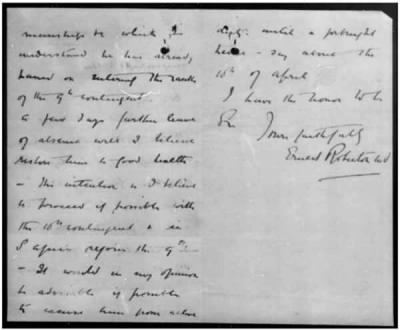 understand he has already
on entering the ranks
of the 9th contingent.
A few days further leave
of absence will I believe
restore him to good health
- His intention is I believe
to proceed if possible with
the 10th contingent & in
S Africa rejoin the 9th
- It would in my opinion
be advisable if possible
to excuse him from active
duty until a fortnight
hence - say about the
10th of April
I have the honor to be
Sir Yours faithfully
Ernest